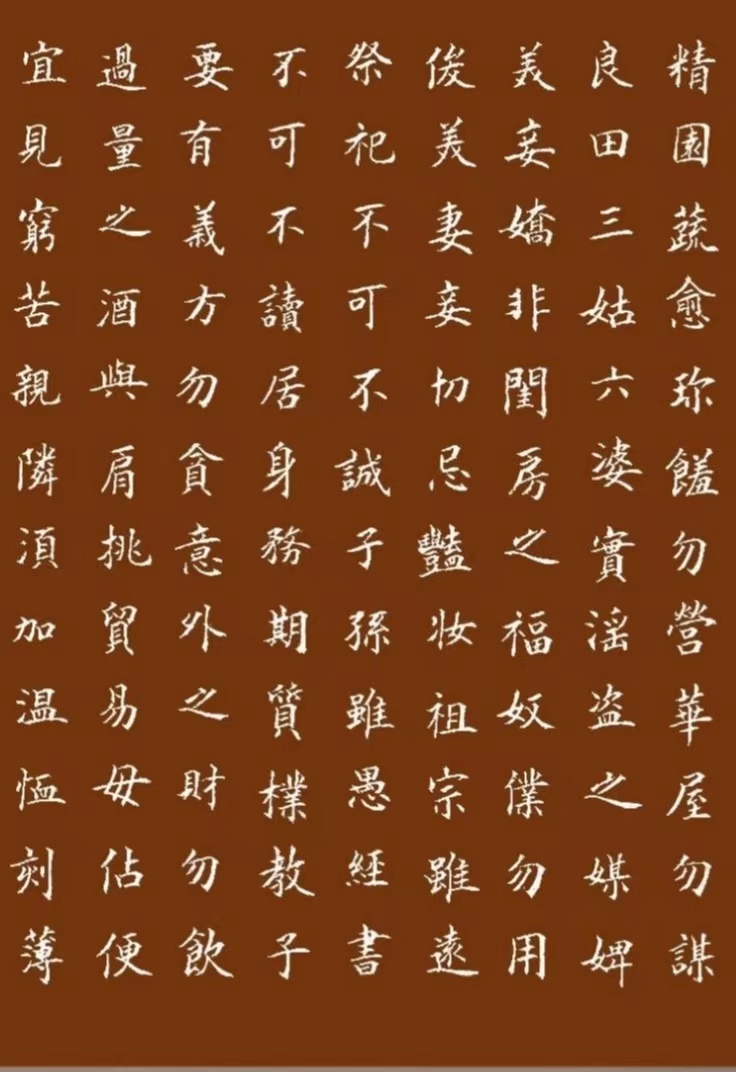 精園蔬愈珍饈勿營華屋勿謀
良田三姑六婆實淫盗之媒婢
美妾嬌非閨房之福奴僕勿用
俊美妻妾切忌豔妝祖宗雖遠
祭祀不可不誠子孫雖愚經書
不可不讀居身務期質樸教子
要有義方勿貪意外之財勿飲
過量之酒與肩挑貿易毋佔便
宜見窮苦親隣須加温恤刻薄